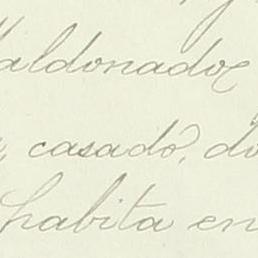 Maldonado
casado, d
habita en